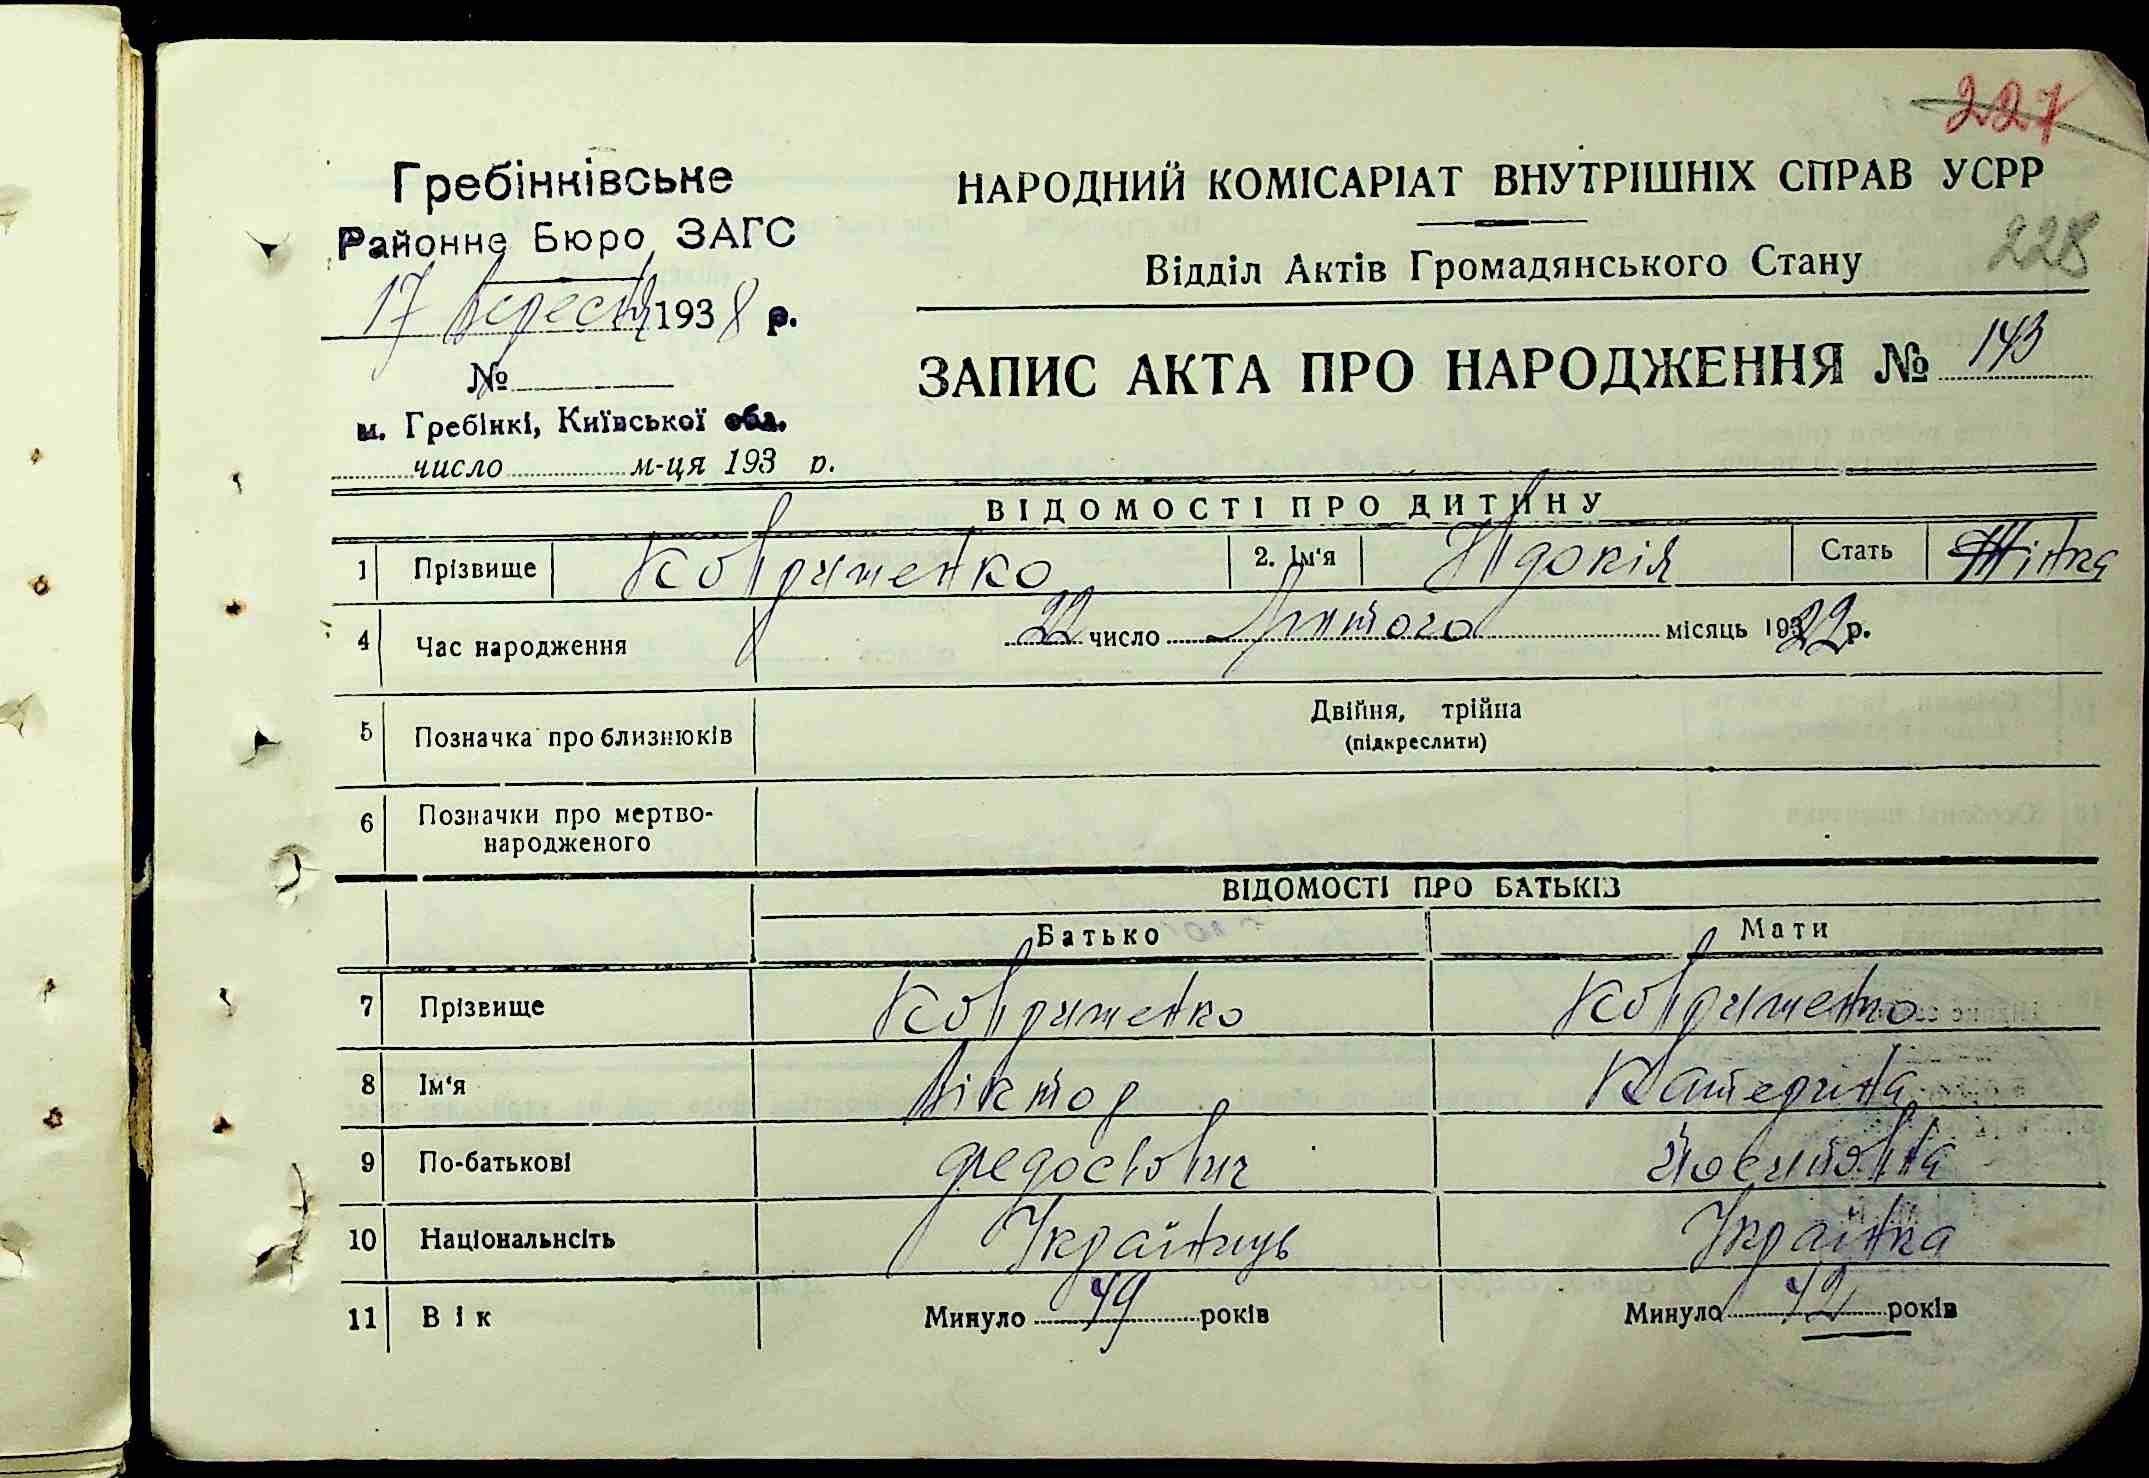 227
НАРОДНИЙ КОМІСАРІАТ ВНУТРІШНІХ СПРАВ УСРР
228
Відділ Актів Громадянського Стану
Гребінківське
Районне Бюро ЗАГС
17 вересня 1938 р.
№
м. Гребінкі, Київської обл.
число м-ця 193 р.
ЗАПИС АКТА ПРО НАРОДЖЕННЯ № 143
ВІДОМОСТІ ПРО ДИТИНУ
1 Прізвище Ковриженко 2. Ім'я Явдокія Стать Жінка
4 Час народження 22 число Лютого місяць 1922 р.
5 Позначка про близнюків Двійня, трійна
(підкреслити)
6 Позначки про мертво-
народженого
ВІДОМОСТІ ПРО БАТЬКІВ
Батько Мати
7 Прізвище Ковриженко Ковриженко
8 Ім'я Віктор Катерина
9 По-батькові Федосович Йосиповна
10 Національнсіть Українць Українка
11 Вік Минуло 49 років Минуло років